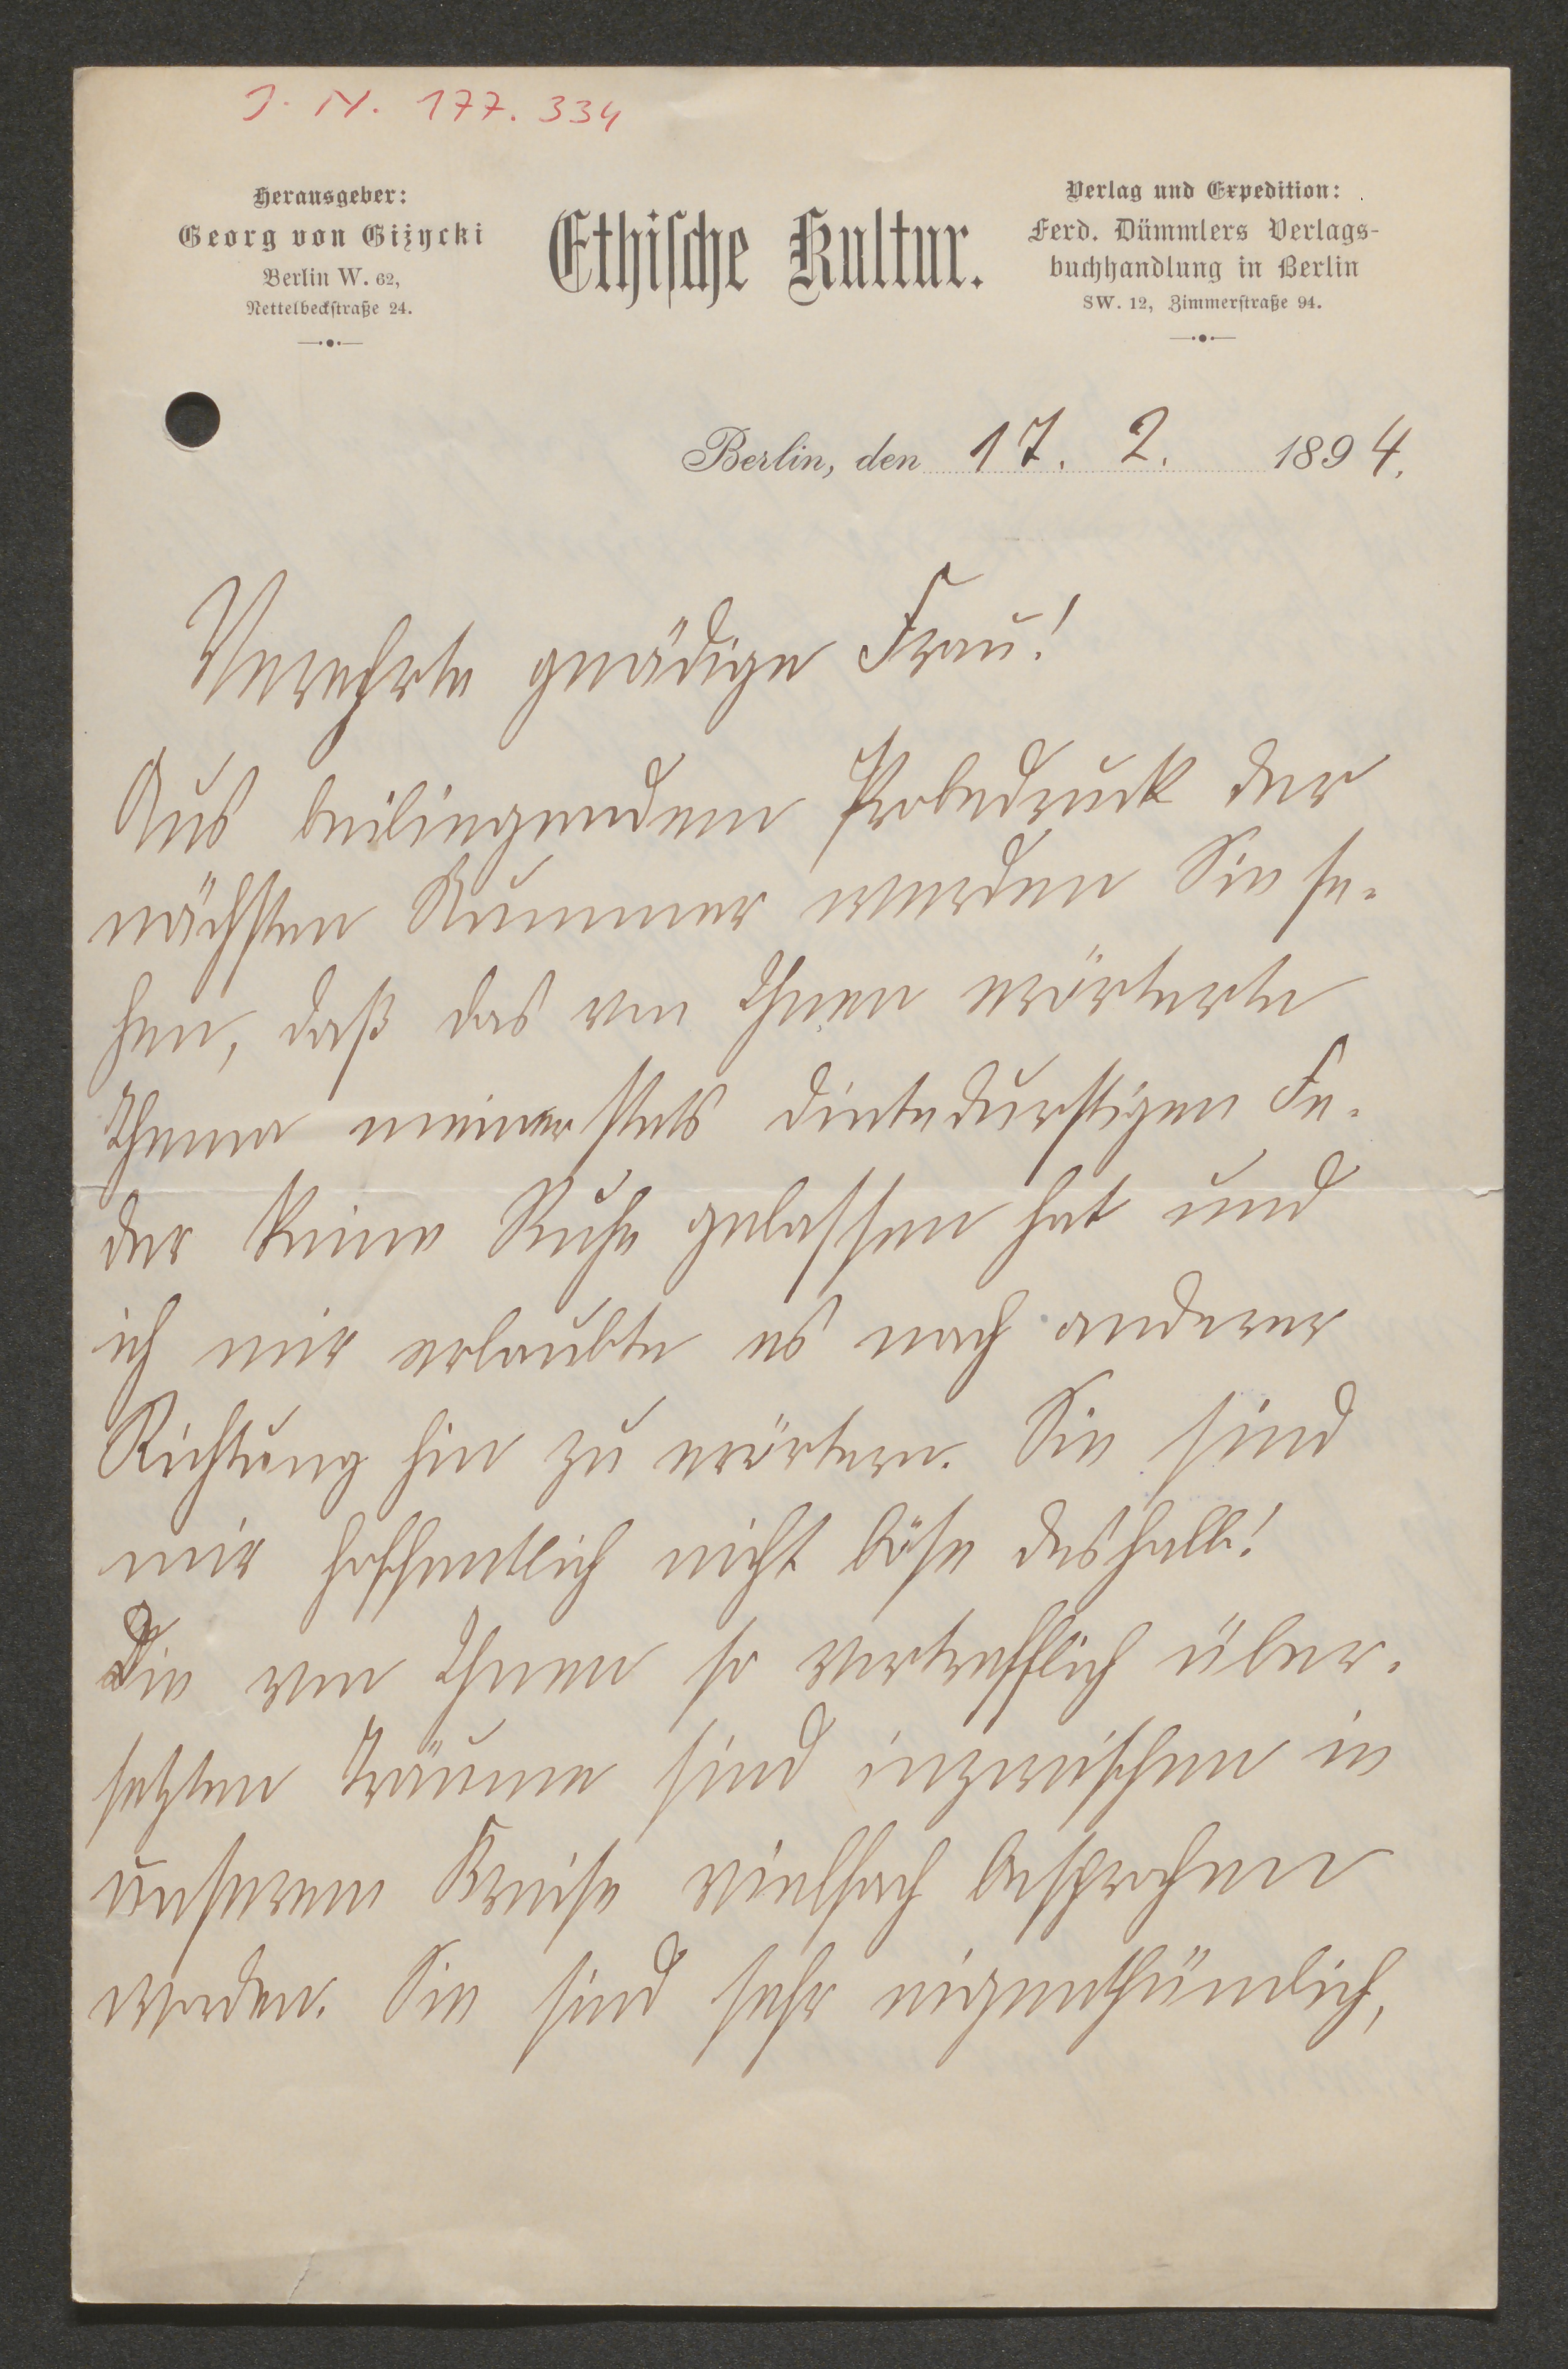 J. N. 177.334
Herausgeber:
Georg von Giżycki
Berlin W. 62,
Nettelbeckstraße 24.
Ethische Kultur.
Verlag und Expedition:
Ferd. Dümmlers Verlags-
buchhandlung in Berlin
SW. 12, Zimmerstraße 94.
Berlin, den 17. 2. 1894.
Verehrte gnädige Frau!
Aus beiliegendem Probedruck der
nächsten Nummer werden Sie se-
hen, daß das von Ihnen erörterte
Thema meiner stets dintedurstigen Fe-
der keine Ruhe gelassen hat und
ich mir erlaubte es nach anderer
Richtung hin zu erörtern. Sie sind
mir hoffentlich nicht böse deshalb!
Die von Ihnen so vortrefflich über-
setzten Träume sind inzwischen in
unserem Kreise vielfach besprochen
worden. Sie sind sehr eigenthümlich,